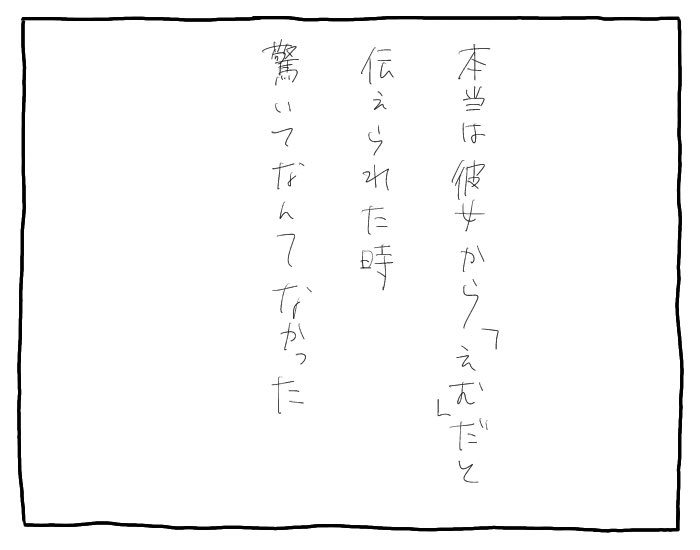 本当は彼女から「えむ」だと
伝えられた時
驚いてなんてなかった